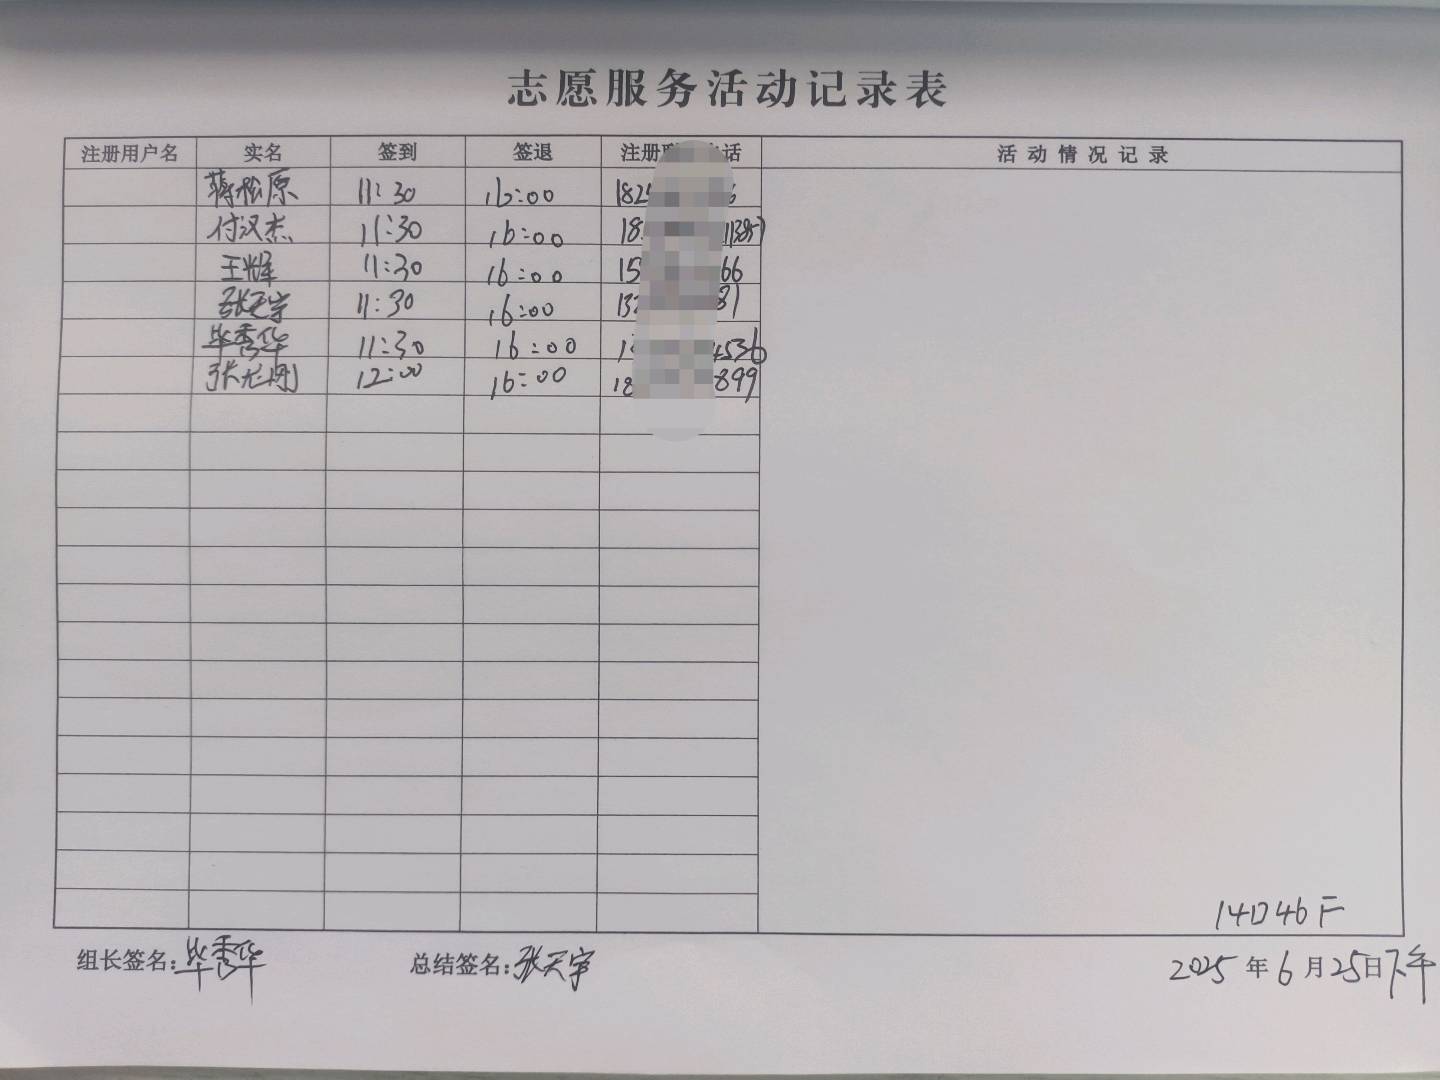 志愿服务活动记录表
注册用户名 实名 签到 签退 注册 话 活动情况记录
蒋松原 11:30 16:00 182 6
付汉杰 11:30 16:00 18 11385
王辉 11:30 16:00 15 66
张天宇 11:30 16:00 132 81
毕秀华 11:30 16:00 1 4536
张龙刚 12:00 16:00 18 899
14046
组长签名:毕秀华 总结签名:张天宇 2025年6月25日下午